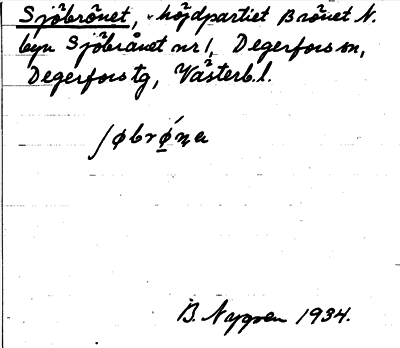 Sjöbrånet, höjdpartiet Brånet N.
byn Sjöbrånet nr 1, Degerfors sn,
Degerfors tg, Västerb. l.
ʃøbrǿna
B. Nygren 1934.